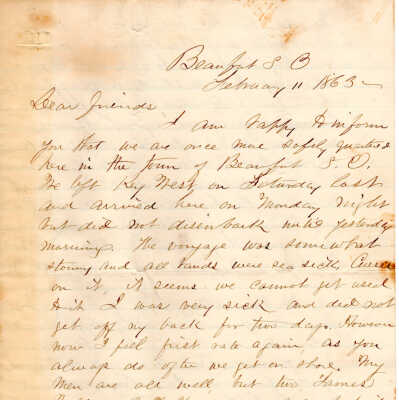 Beaufort S C
February 11 1863
Dear friends
I am happy to inform
you that we are once more safely quartered
here in the town of Beaufort S. C.
We left Key West on Saturday last
and arrived here on Monday night
but did not disembark until yesterday
morning. The voyage was somewhat
stormy and all hands were sea sick, Curse
on it, it seems we cannot get used
to it I was very sick and did not
get off my back for two days. However
now I feel first rate again, as you
always do after we get on shore. My
men are all well but two James